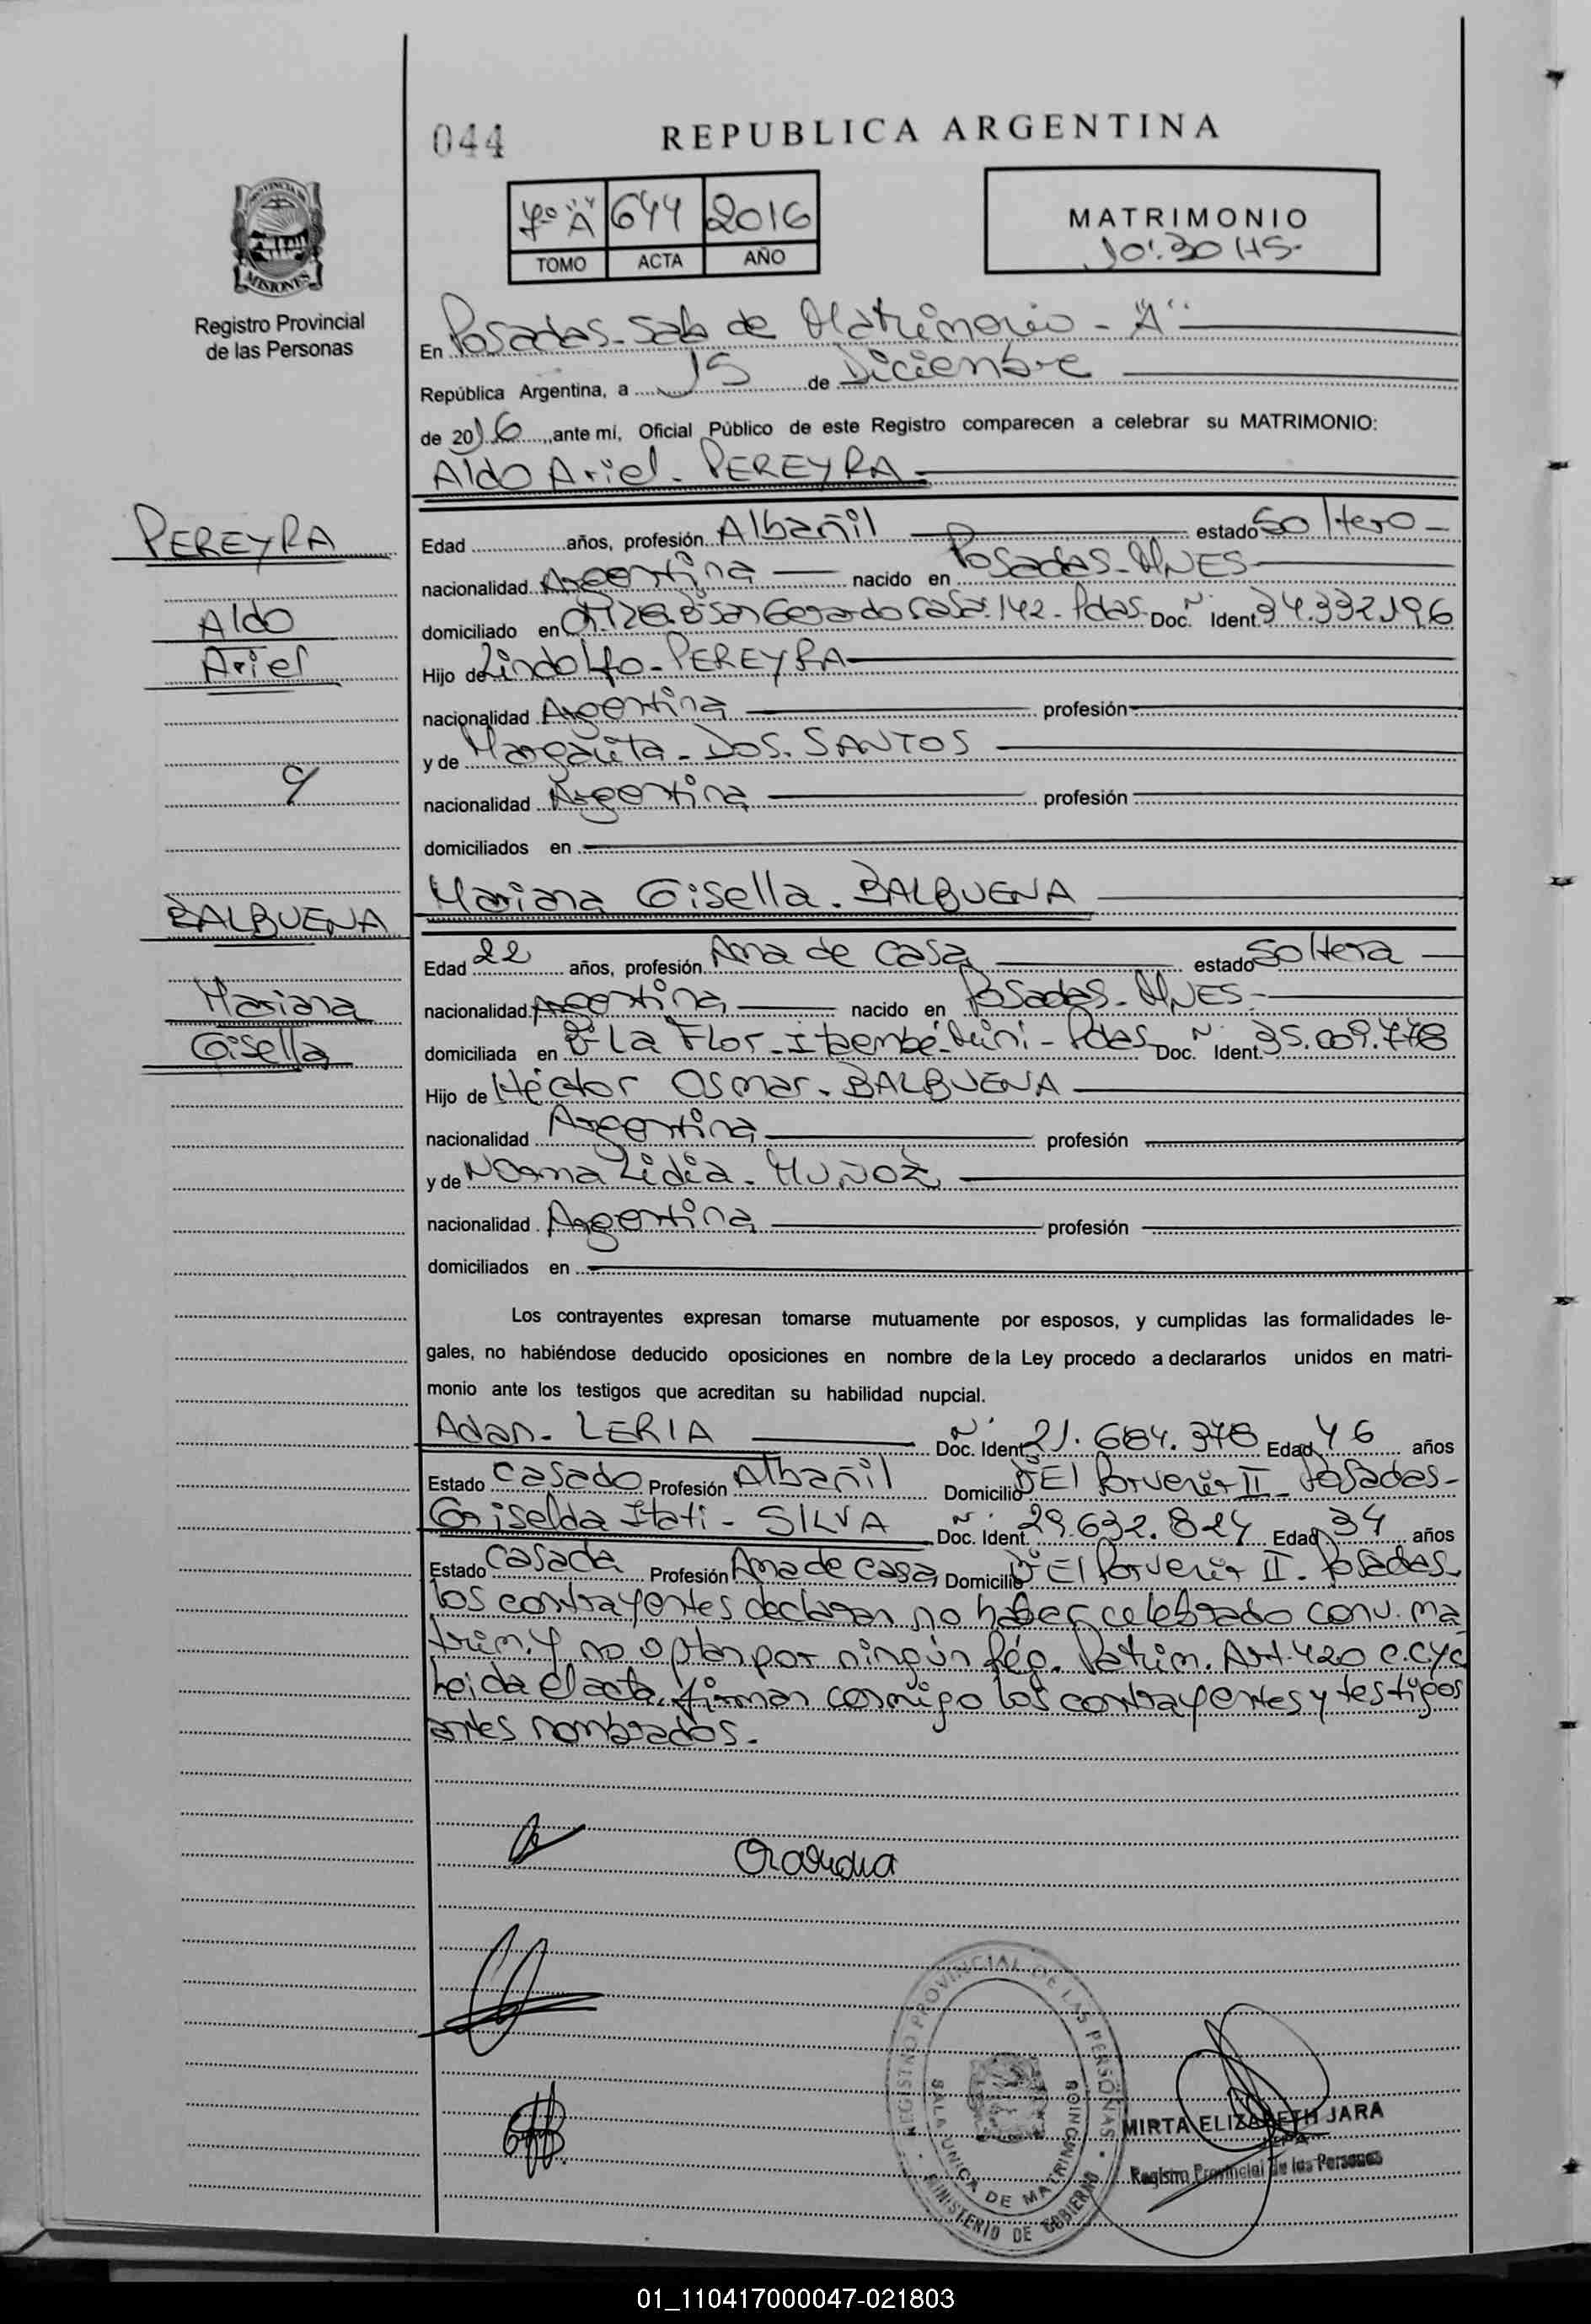 044
REPUBLICA ARGENTINA
7º "A" 644 2016
TOMO ACTA AÑO
MATRIMONIO
10:30 HS-
PROVINCIA DE
MISIONES
Registro Provincial
de las Personas
En Posadas- Sala de Matrimonio - "A"
República Argentina, a 15 de Diciembre
de 2016, ante mí, Oficial Público de este Registro comparecen a celebrar su MATRIMONIO:
Aldo Ariel. PEREYRA
PEREYRA
Aldo
Ariel
Edad años, profesión Albañil estado Soltero-
nacionalidad Argentina nacido en Posadas- MNES
domiciliado en San Gerardo casa: 142- Pdas. Doc. Ident. 34.332.196
Hijo de Lindolfo- PEREYRA
nacionalidad Argentina profesión
y de Margarita- DOS. SANTOS
nacionalidad Argentina profesión
domiciliados en
Mariana Gisella. BALBUENA
BALBUENA
Mariana
Gisella
Edad 22 años, profesión Ama de casa estado Soltera
nacionalidad Argentina nacido en Posadas- MNES-
domiciliada en Bº La Flor- Itaembé-Miní- Pdas Doc. Ident. 35.009.778
Hijo de Héctor Osmar. BALBUENA
nacionalidad Argentina profesión
y de Norma Lidia. MUÑOZ
nacionalidad Argentina profesión
domiciliados en
Los contrayentes expresan tomarse mutuamente por esposos, y cumplidas las formalidades le-
gales, no habiéndose deducido oposiciones en nombre de la Ley procedo a declararlos unidos en matri-
monio ante los testigos que acreditan su habilidad nupcial.
Adan- LERIA Doc. Ident. 21.684.378 Edad 46 años
Estado Casado Profesión Albañil Domicilio Bº El Porvenir II- Posadas-
Griselda Itati- SILVA Doc. Ident. 29.632.824 Edad 34 años
Estado Casada Profesión Ama de casa Domicilio Bº El Porvenir II- Posadas-
los contrayentes declaran no haber celebrado conv. ma
trim. y no optan por ningún Rég. Patrim. Art. 420 C.C.yC
Leida el acta, firman conmigo los contrayentes y testigos
antes nombrados.
REGISTRO PROVINCIAL DE LAS PERSONAS
SALA UNICA DE MATRIMONIOS
MINISTERIO DE GOBIERNO
MIRTA ELIZABETH JARA
JEFA
Registro Provincial de las Personas
01_110417000047-021803